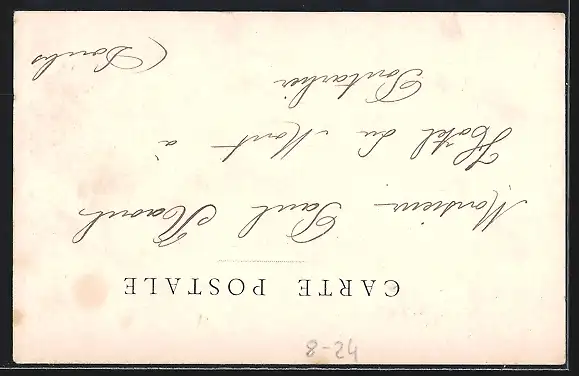 CARTE POSTALE
Monsieur Paul Raoul
Hotel du Mont à
Pontarlier
(Doubs
8-24